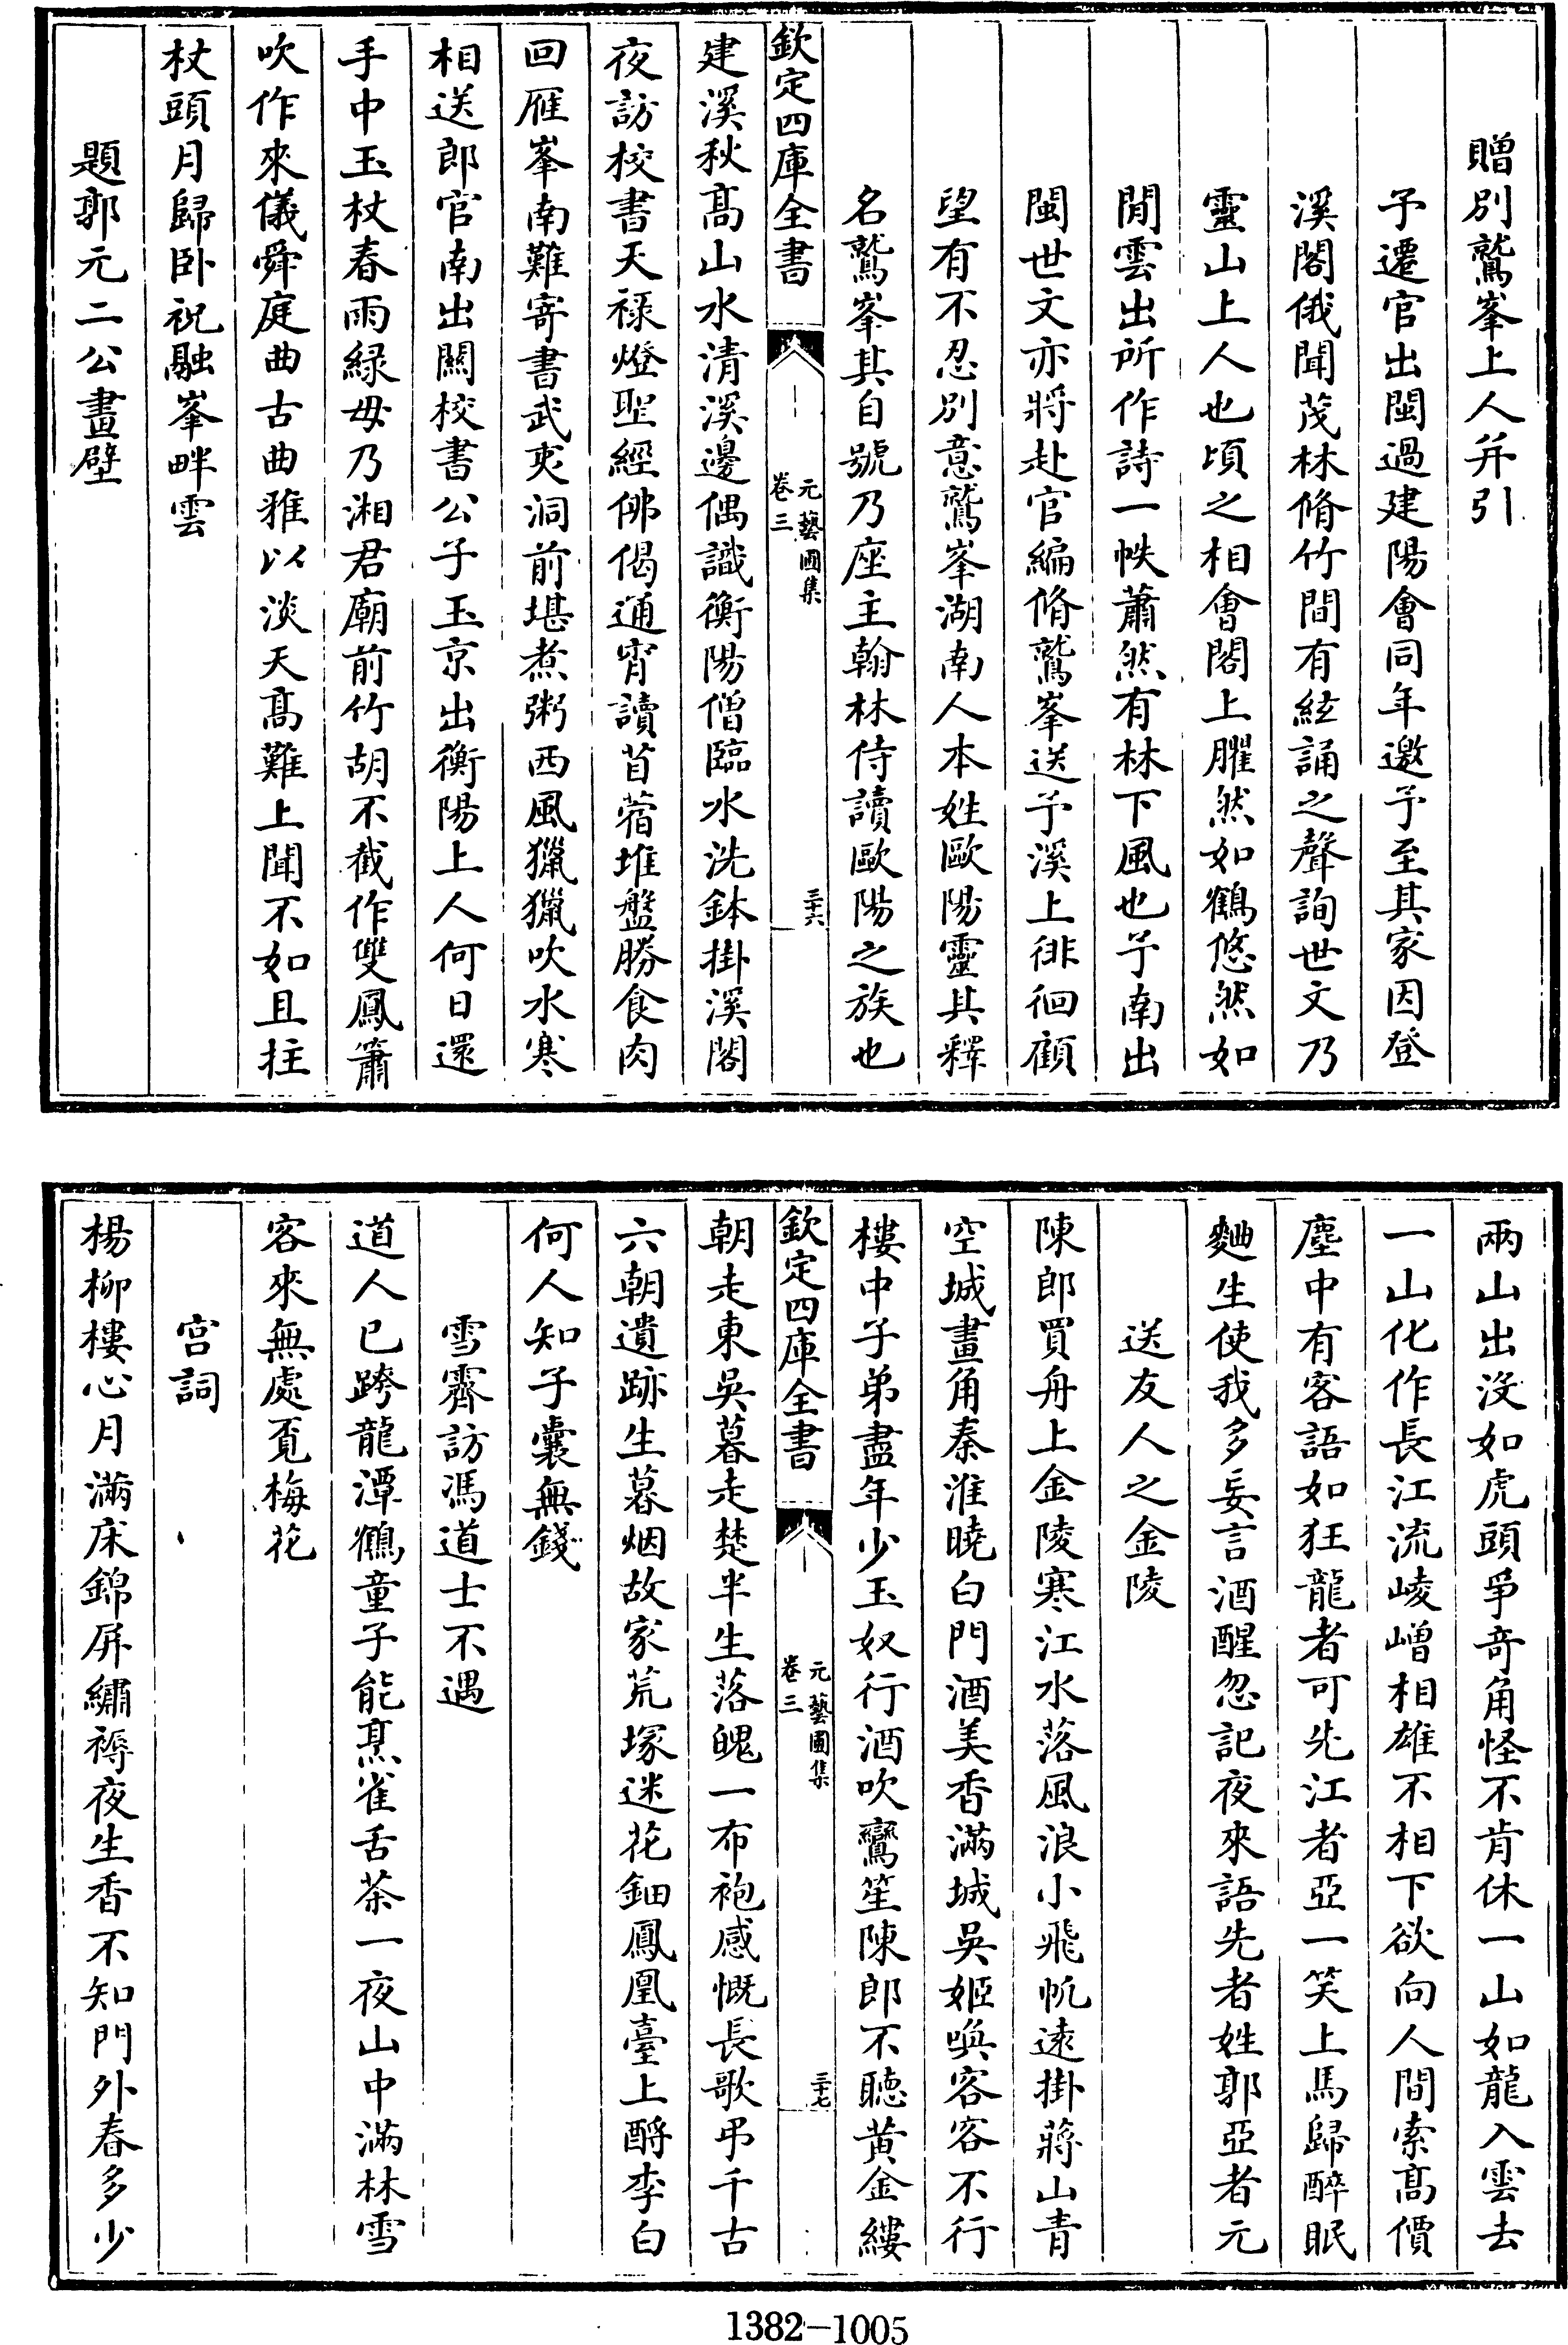 贈別鷲峯上人并引
予遷官出閩過建陽會同年邀予至其家因登
溪閣俄聞茂林脩竹間有絃誦之聲詢世文乃
靈山上人也頃之相會閣上臞然如鶴悠然如
閒雲出所作詩一帙蕭然有林下風也予南出
閩世文亦將赴官編脩鷲峯送予溪上徘徊顧
望有不忍別意鷲峯湖南人本姓歐陽靈其釋
名鷲峯其自號乃座主翰林侍讀歐陽之族也
欽定四庫全書
元藝圃集
卷三
三十六
建溪秋髙山水清溪邊偶識衡陽僧臨水洗鉢掛溪閣
夜訪校書天禄燈聖經佛偈通宵讀苜蓿堆盤勝食肉
回雁峯南難寄書武夷洞前堪煮粥西風獵獵吹水寒
相送郎官南出闗校書公子玉京出衡陽上人何日還
手中玉杖春雨緑毋乃湘君廟前竹胡不截作雙鳳簫
吹作來儀舜庭曲古曲雅以淡天髙難上聞不如且拄
杖頭月歸卧祝融峯畔雲
題郭元二公畫壁
兩山出没如虎頭爭奇角怪不肯休一山如龍入雲去
一山化作長江流崚嶒相雄不相下欲向人間索髙價
塵中有客語如狂龍者可先江者亞一笑上馬歸醉眠
麯生使我多妄言酒醒忽記夜來語先者姓郭亞者元
送友人之金陵
陳郎買舟上金陵寒江水落風浪小飛帆逺掛蔣山青
空城畫角秦淮曉白門酒美香滿城吳姬喚客客不行
樓中子弟盡年少玉奴行酒吹鸞笙陳郎不聽黄金縷
欽定四庫全書
元藝圃集
卷三
三十七
朝走東吳暮走楚半生落魄一布袍感慨長歌弔千古
六朝遺跡生暮烟故家荒塚迷花鈿鳳凰臺上酹李白
何人知子囊無錢
雪霽訪馮道士不遇
道人已跨龍潭鶴童子能烹雀舌茶一夜山中滿林雪
客來無處覓梅花
宫詞
楊柳樓心月滿床錦屏繡褥夜生香不知門外春多少
1382—1005